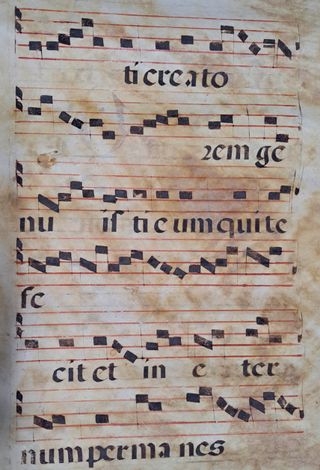 ti creato
rem ge
nu is ti e um qui te
fe
cit et in e ter
num perma nes